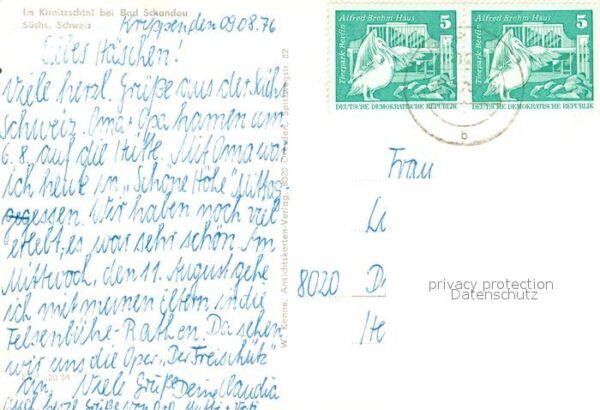 Im Kirnitzschtal bei Bad Schandau
Sächs. Schweiz
Krippen den 09.08.76
Liebes Häschen!
Viele herzl. Grüße aus der Sächs.
Schweiz. Oma + Opa kamen am
6.8. auf die Hütte. Mit Oma war
ich heute in "Schöne Höhe" Mittag
gegessen. Wir haben noch viel
erlebt, es war sehr schön. Am
Mittwoch, den 11. August gehe
ich mit meinen Eltern in die
Felsenbühne Rathen. Da sehen
wir uns die Oper "Der Freischütz"
an. Viele Grüße Deine Claudia
auch herzl. Grüße von
W. Kenne, Ansichtskarten-Verlag, 8020 Dresden, Spitzwegstr. 52
Alfred Brehm Haus 5
Tierpark Berlin
DEUTSCHE DEMOKRATISCHE REPUBLIK
Alfred Brehm Haus 5
Tierpark Berlin
DEUTSCHE DEMOKRATISCHE REPUBLIK
b
Frau
8020 D
privacy protection
Datenschutz